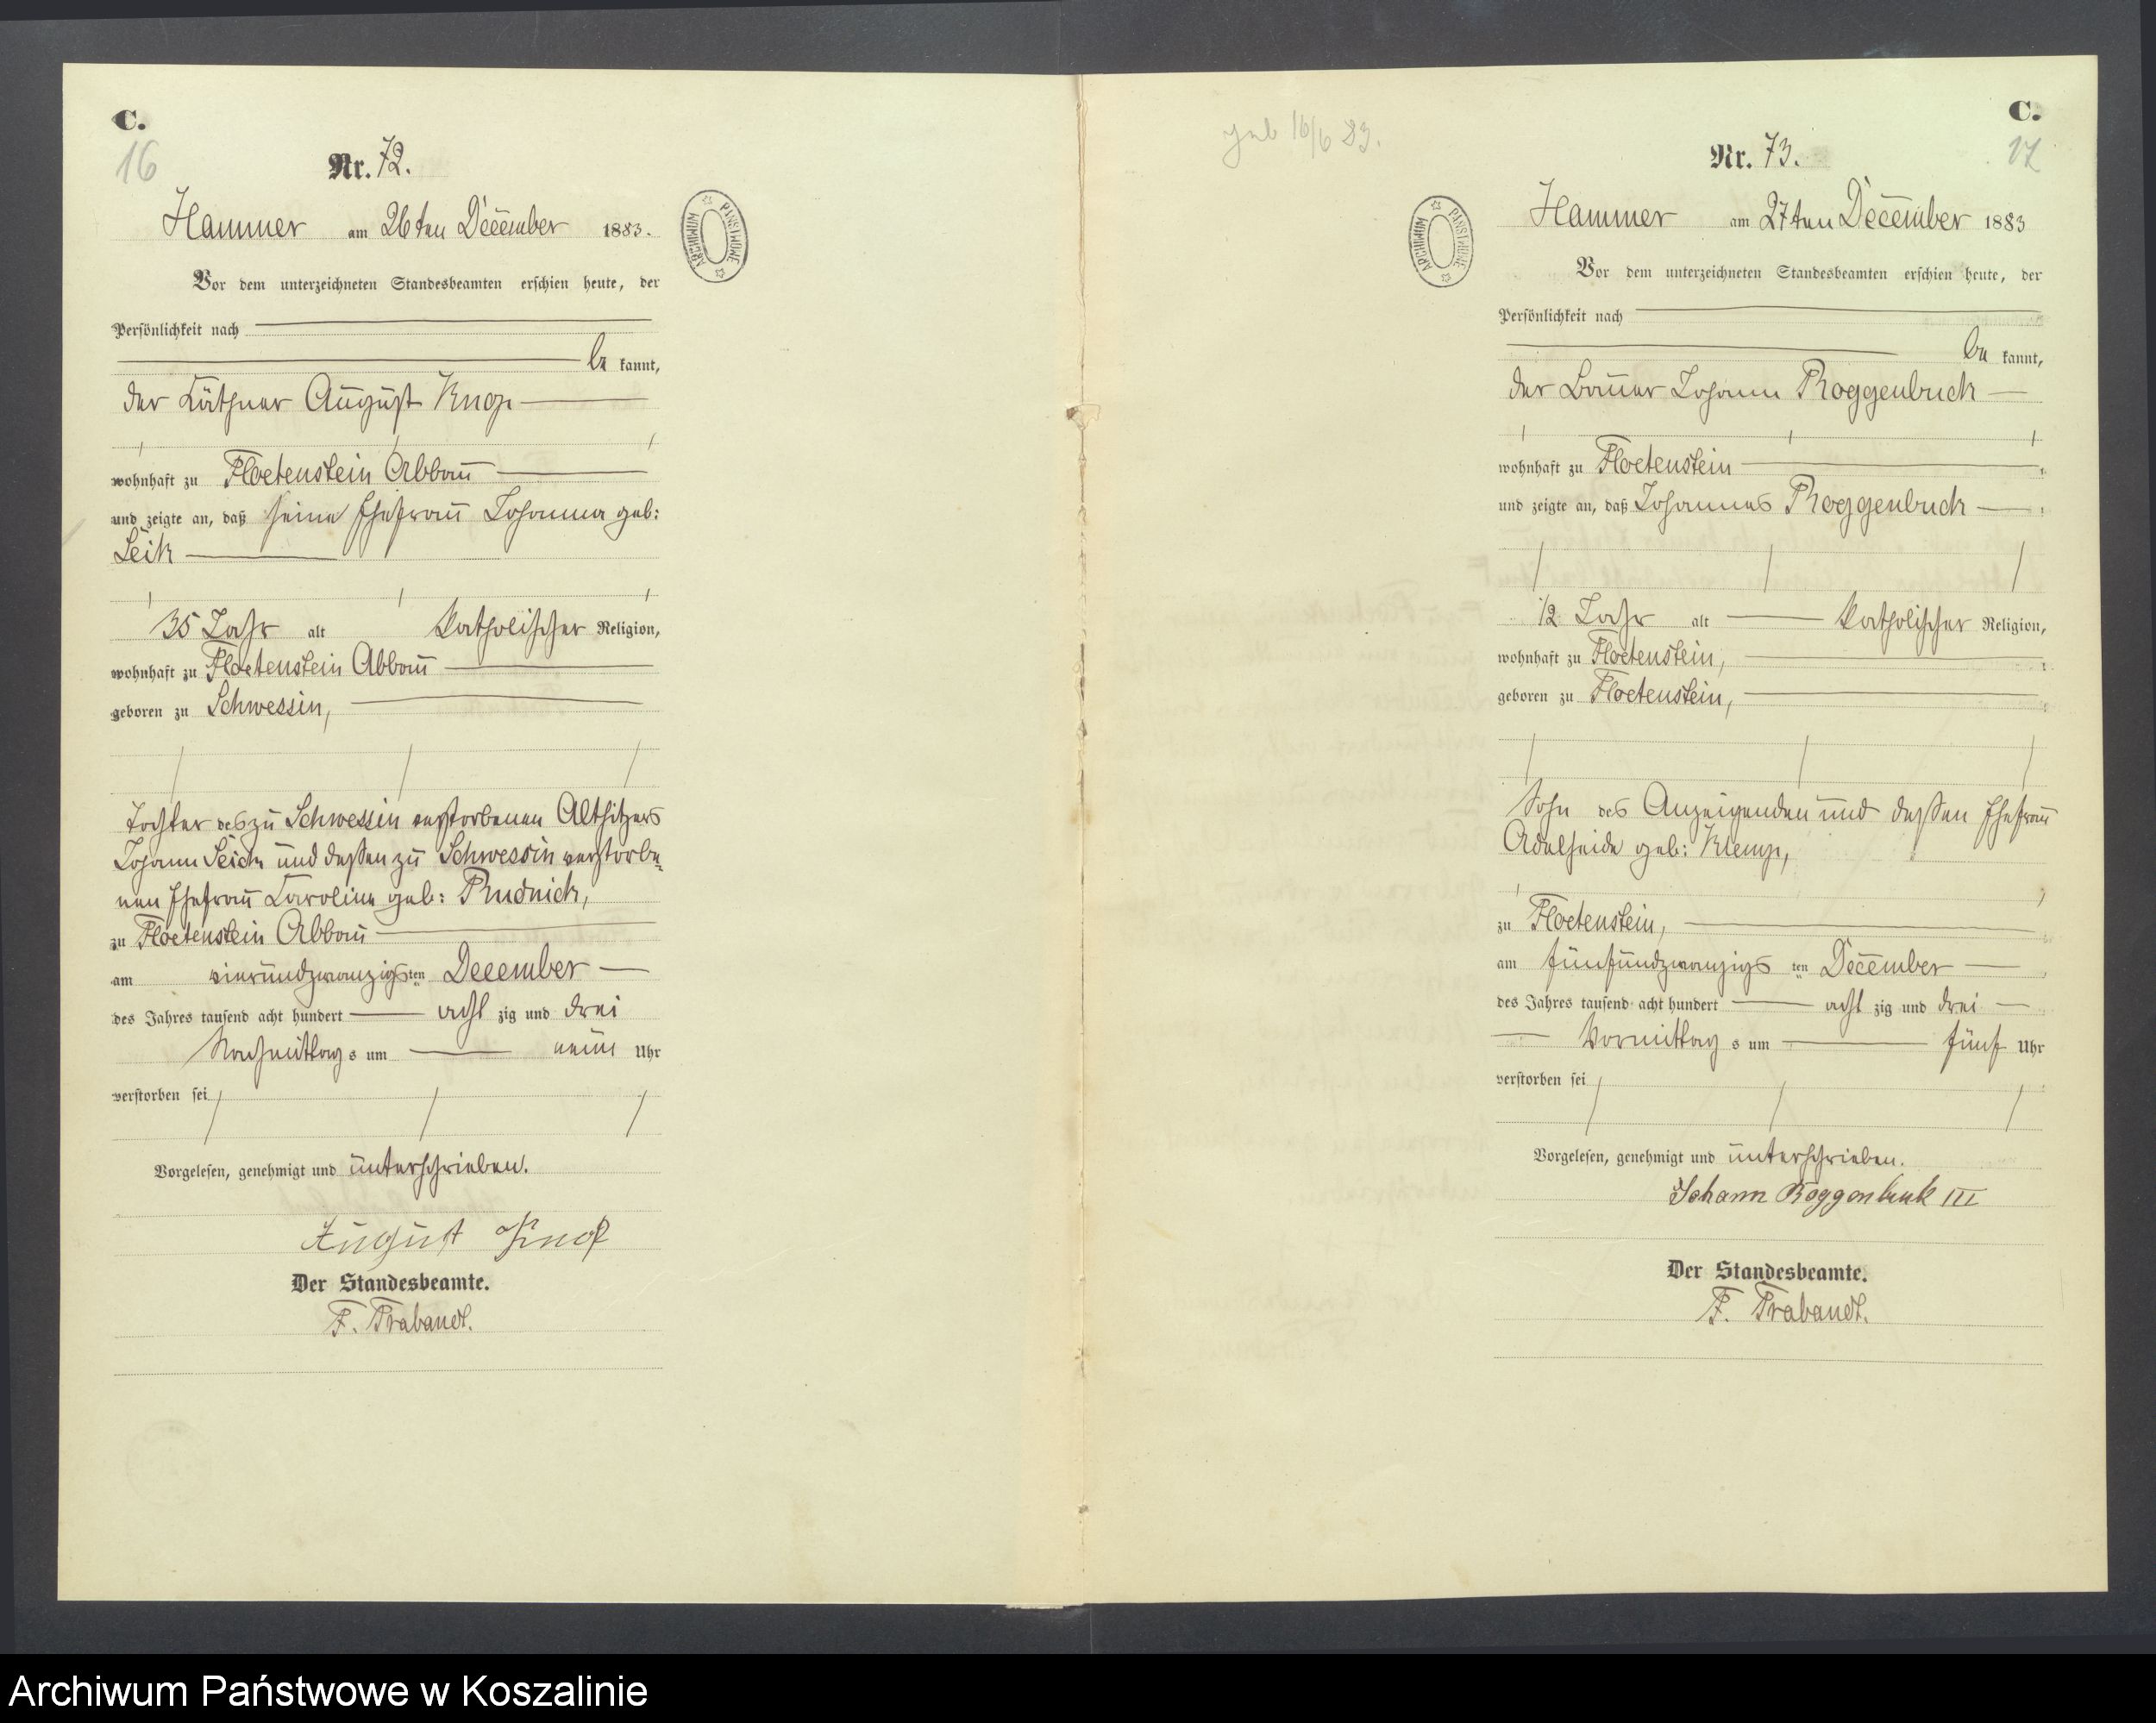 C.
16
Nr. 72.
Hammer am 26ten December 1883.
Vor dem unterzeichneten Standesbeamten erschien heute, der
Persönlichkeit nach
be kannt,
der Käthner August Knop
wohnhaft zu Floetenstein Abbau
und zeigte an, daß seine Ehefrau Johanna geb:
Seik
35 Jahr alt katholischer Religion,
wohnhaft zu Floetenstein Abbau
geboren zu Schwessin,
Tochter des zu Schwessin verstorbenen Altsitzers
Johann Seick und dessen zu Schwessin verstorbe-
nen Ehefrau Caroline geb: Rudnick,
zu Floetenstein Abbau
am vierundzwanzigsten December
des Jahres tausend acht hundert acht zig und drei
Nachmittags um neun Uhr
verstorben sei
Vorgelesen, genehmigt und unterschrieben.
August Knop
Der Standesbeamte.
F. Trabandt.
ARCHIWUM PAŃSTWOWE
geb 16/6 83.
ARCHIWUM PAŃSTWOWE
C.
17
Nr. 73.
Hammer am 27ten December 1883
Vor dem unterzeichneten Standesbeamten erschien heute, der
Persönlichkeit nach
be kannt,
der Bauer Johann Roggenbuck
wohnhaft zu Floetenstein
und zeigte an, daß Johannes Roggenbuck
1/2 Jahr alt katholischer Religion,
wohnhaft zu Floetenstein,
geboren zu Floetenstein,
Sohn des Anzeigenden und dessen Ehefrau
Adelheide geb: Klemp,
zu Floetenstein,
am fünfundzwanzigsten December
des Jahres tausend acht hundert acht zig und drei
Vormittags um fünf Uhr
verstorben sei
Vorgelesen, genehmigt und unterschrieben.
Johann Roggenbuk III
Der Standesbeamte.
F. Trabandt.
Archiwum Państwowe w Koszalinie